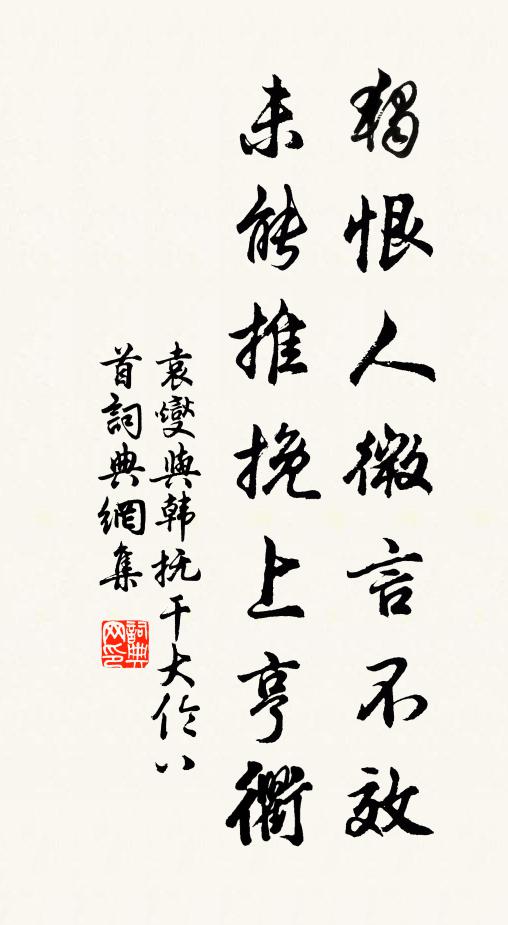 獨恨人微言不效
未能推挽上亨衢
袁燮與韩抚干大伦八
首詞典網集
詞典
网印